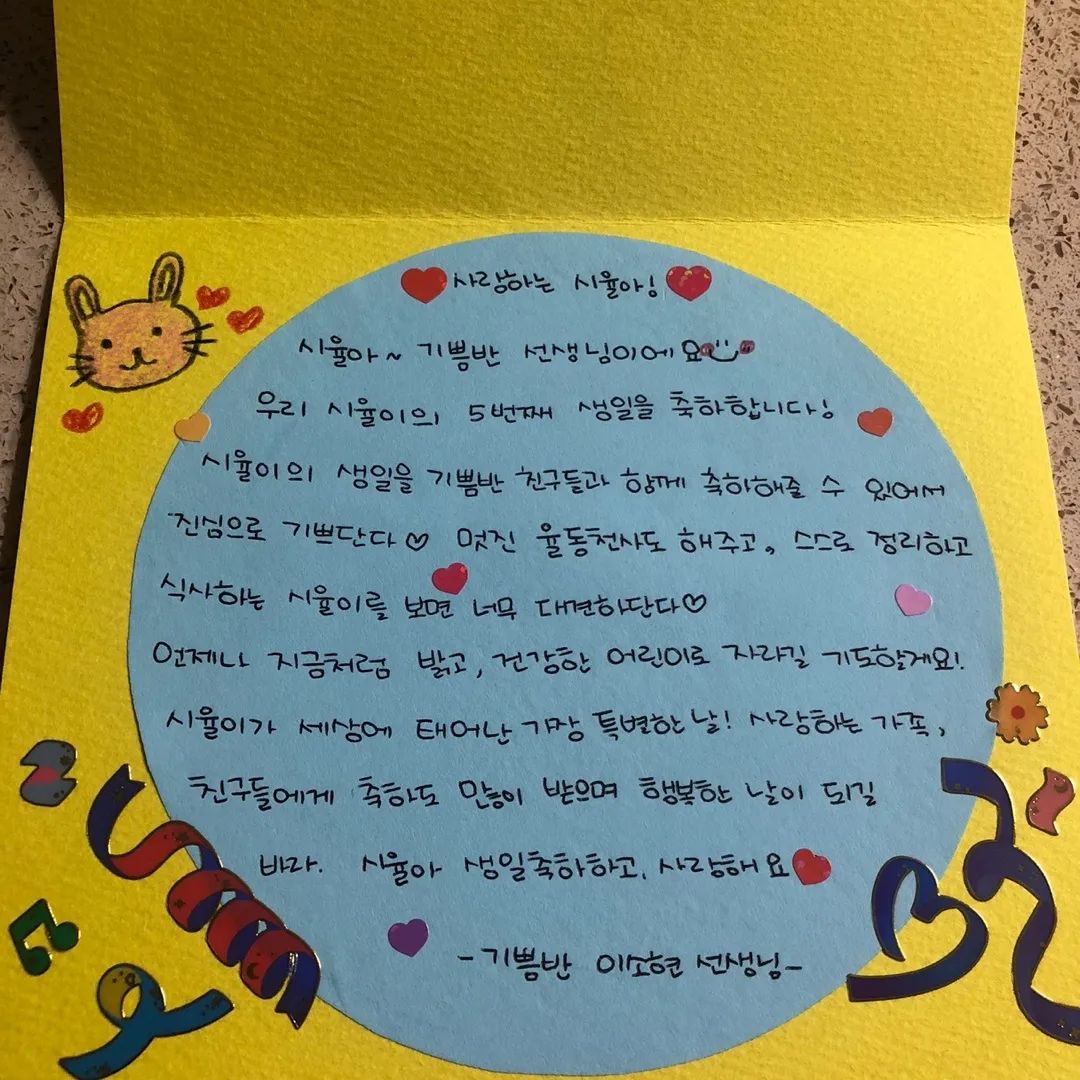 사랑하는 시율아!
시율아~ 기쁨반 선생님이에요
우리 시율이의 5번째 생일을 축하합니다!
시율이의 생일을 기쁨반 친구들과 함께 축하해줄 수 있어서
진심으로 기쁘단다♡ 멋진 율동천사도 해주고, 스스로 정리하고
식사하는 시율이를 보면 너무 대견하단다♡
언제나 지금처럼 밝고, 건강한 어린이로 자라길 기도할게요!
시율이가 세상에 태어난 가장 특별한 날! 사랑하는 가족,
친구들에게 축하도 많이 받으며 행복한 날이 되길
바라. 시율아 생일축하하고, 사랑해요
-기쁨반 이소현 선생님-